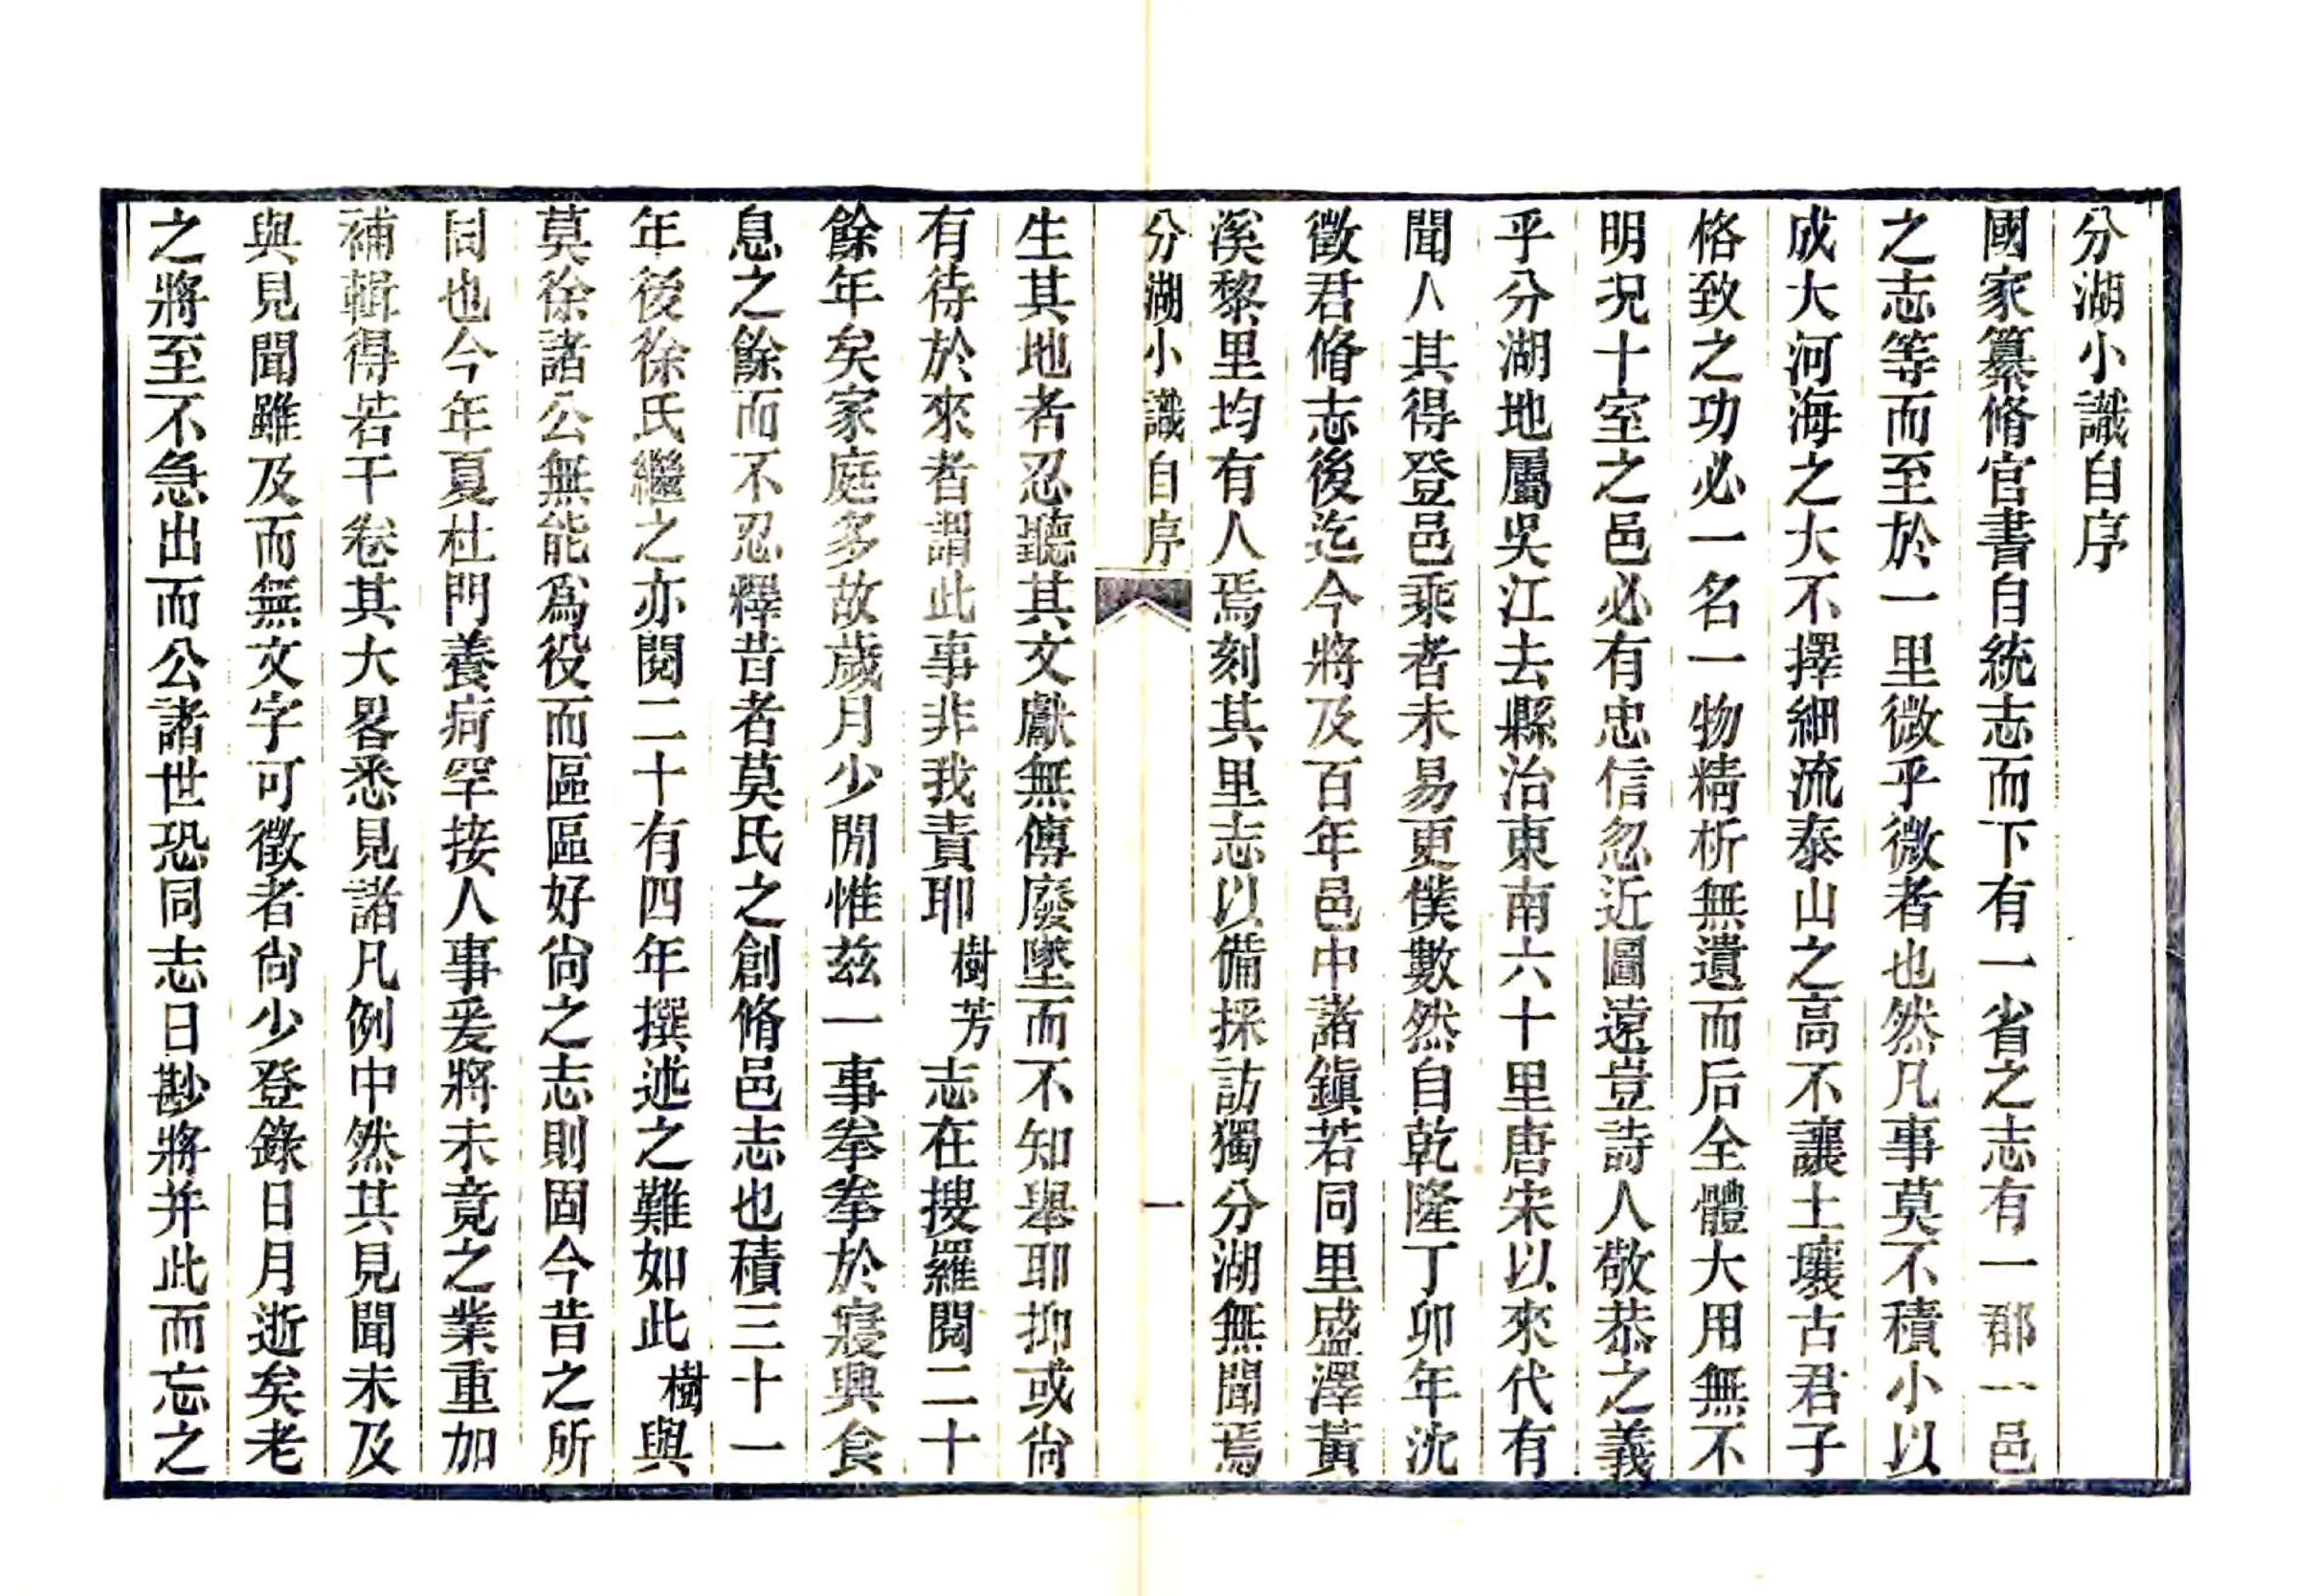 分湖小識自序
國家纂脩官書自統志而下有一省之志有一郡一邑
之志等而至於一里微乎微者也然凡事莫不積小以
成大河海之大不擇細流泰山之高不讓土壤古君子
格致之功必一名一物精析無遺而后全體大用無不
明況十室之邑必有忠信忽近圖遠豈詩人敬恭之義
乎分湖地屬吳江去縣治東南六十里唐宋以來代有
聞人其得登邑乘者未易更僕數然自乾隆丁卯年沈
徵君脩志後迄今將及百年邑中諸鎭若同里盛澤黃
溪黎里均有人焉刻其里志以備採訪獨分湖無聞焉
分湖小識自序 一
生其地者忍聽其文獻無傳廢墜而不知舉耶抑或尙
有待於來者謂此事非我責耶樹芳志在搜羅閱二十
餘年矣家庭多故歲月少閒惟茲一事拳拳於寢興食
息之餘而不忍釋昔者莫氏之創脩邑志也積三十一
年後徐氏繼之亦閱二十有四年撰述之難如此樹與
莫徐諸公無能爲役而區區好尙之志則固今昔之所
同也今年夏杜門養疴罕接人事爰將未竟之業重加
補輯得若干卷其大畧悉見諸凡例中然其見聞未及
與見聞雖及而無文字可徵者尙少登錄日月逝矣老
之將至不急出而公諸世恐同志日尠將并此而忘之